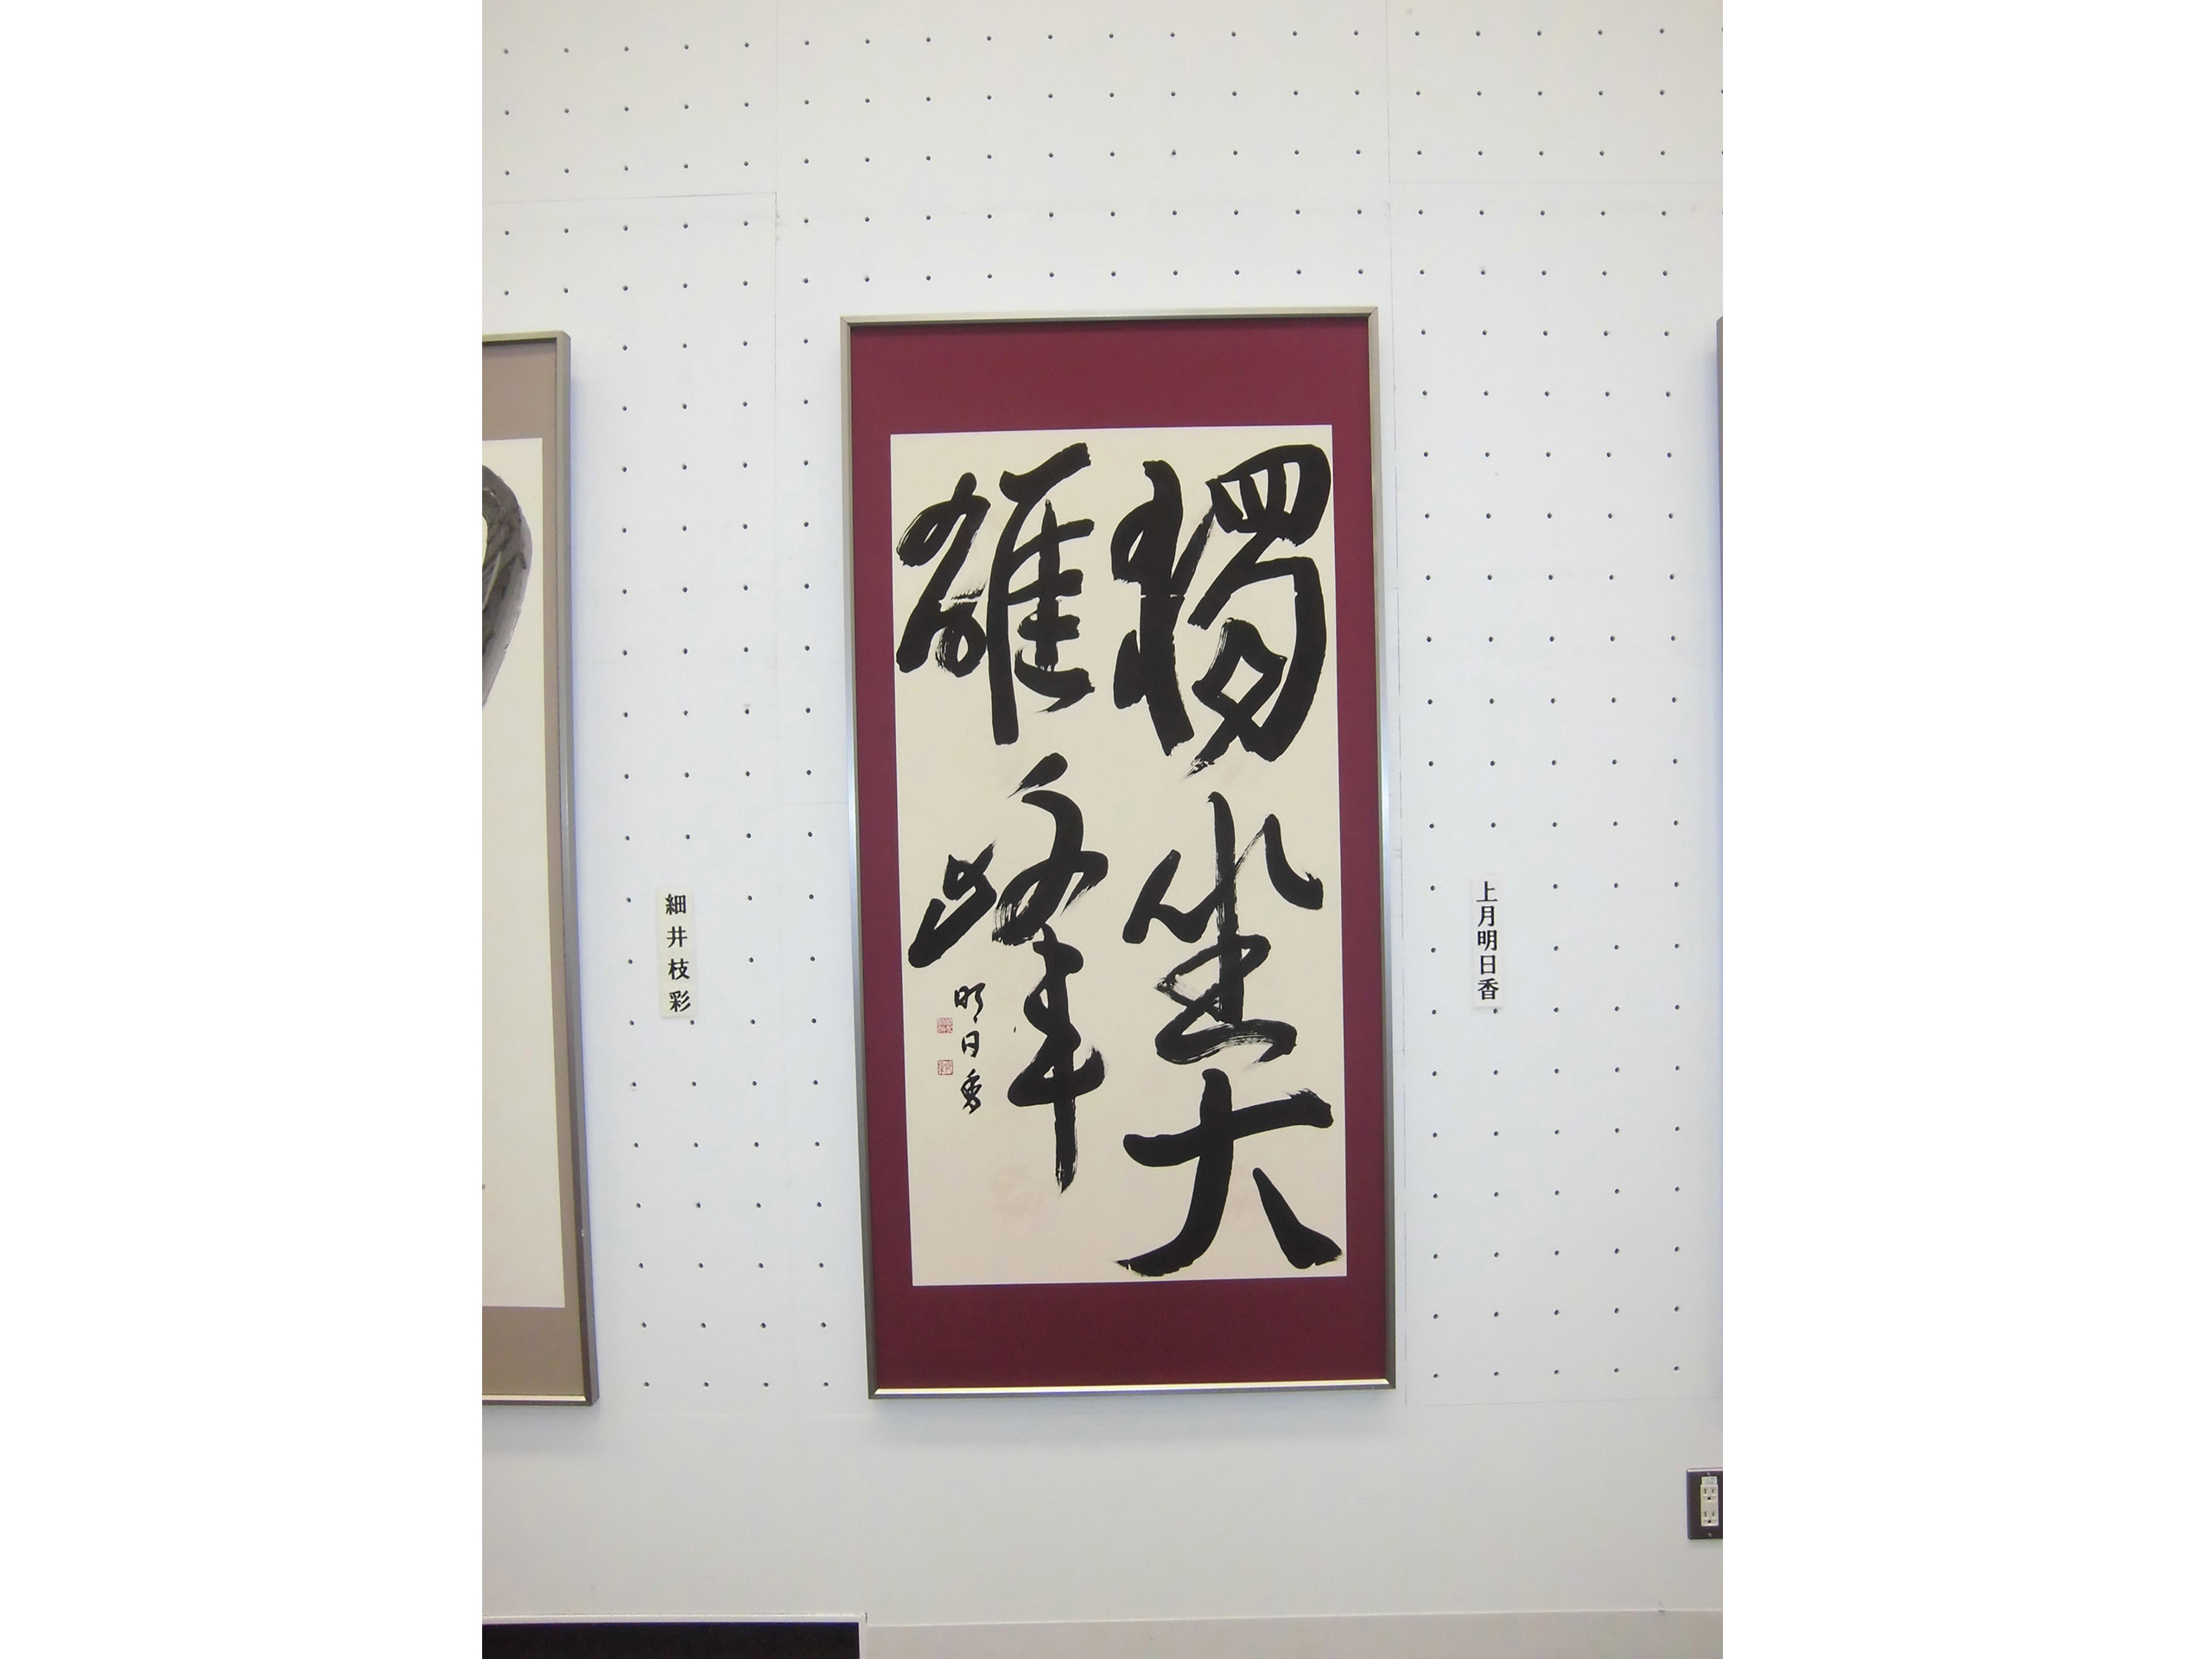 獨坐大
雄峰
明日香
上月明日香
細井枝彩